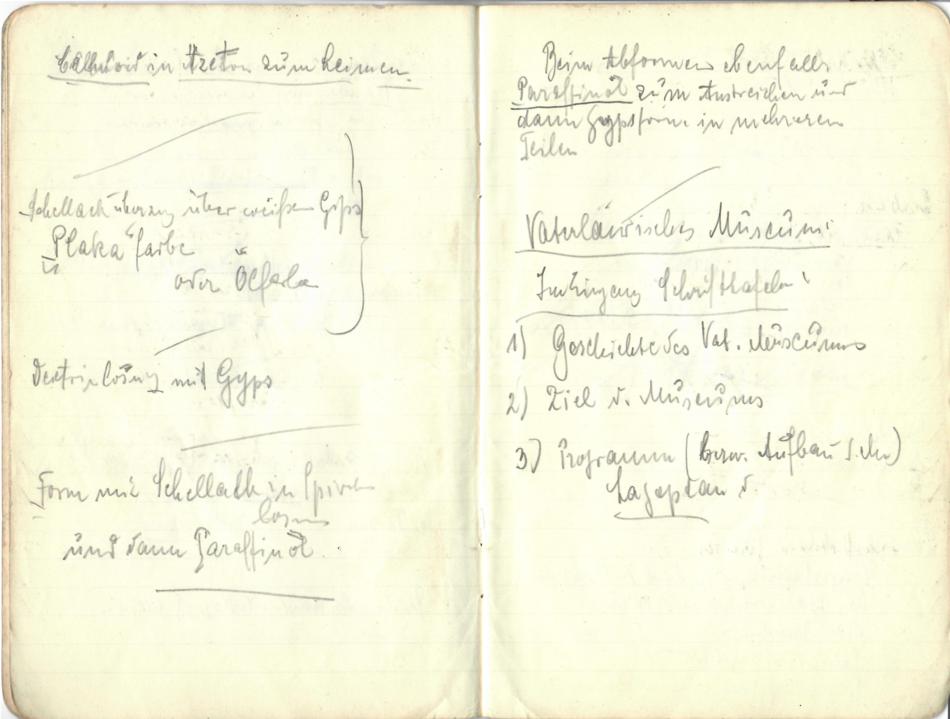 Celluloid in Azeton zum Leimen.
Schellacküberzug über weißen Gyps
"Plaka" farbe
oder Öl
Dextrinlösung mit Gyps
Form mit Schellack in
lösen
und dann Paraffinöl.
Beim Abformen ebenfalls
Paraffinöl zum Ausstreichen und
dann Gypsform in mehreren
Teilen
Vaterländisches Museum:
Im Eingang Schrifttafeln:
1) Geschichte des Vat. Museums
2) Ziel d. Museums
3) Programm (bezw. Aufbau
Lageplan d.